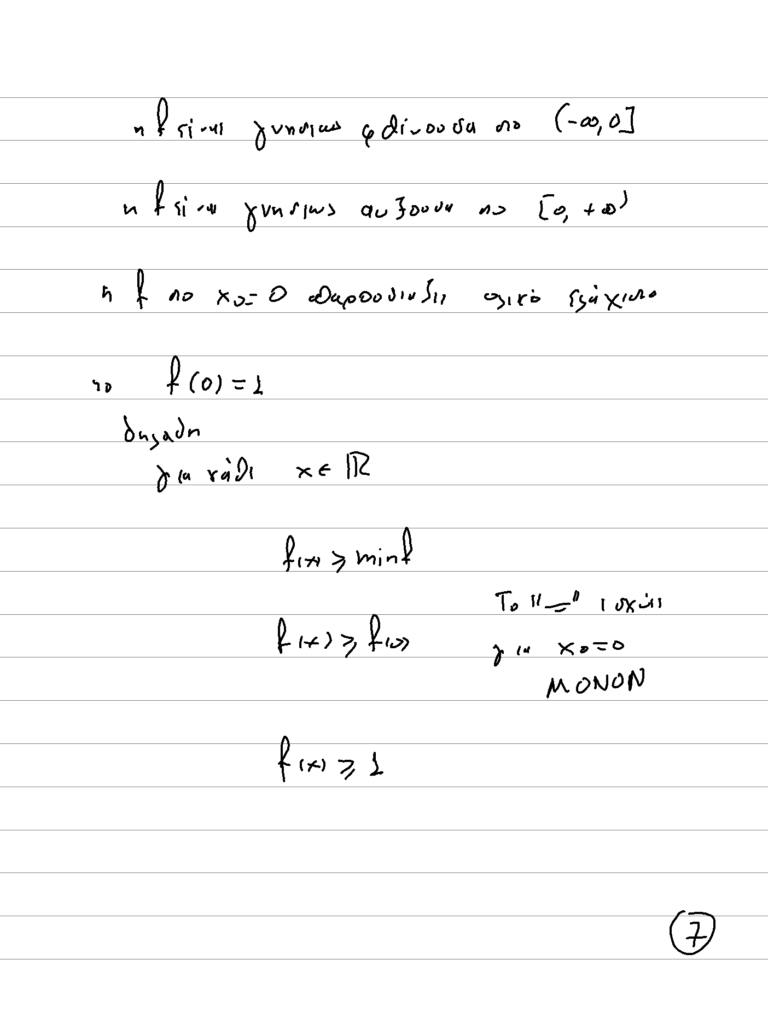 η f είναι γνησίως φθίνουσα στο (-∞, 0]
η f είναι γνησίως αύξουσα στο [0, +∞)
η f στο x₀=0 παρουσιάζει ολικό ελάχιστο
το f(0)=1
δηλαδή
για κάθε x ∈ ℝ
f(x) ≥ min f
Το "=" ισχύει
f(x) ≥ f(0)
για x₀=0
ΜΟΝΟΝ
f(x) ≥ 1
7